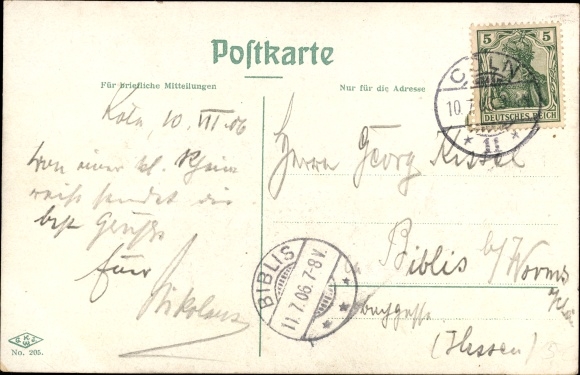 Postkarte
Für briefliche Mitteilungen
Nur für die Adresse
5 5
DEUTSCHES REICH
CÖLN
10.7.
* 11 *
Köln, 10. VII 06
Von einer kl. Rhein
reise sendet die
best Grüße
Euer
Nikolaus
Herrn Georg
Biblis b/ Worms
a/Rh
(Hessen)
BIBLIS
11.7.06.7-8V.
* * *
No. 205.